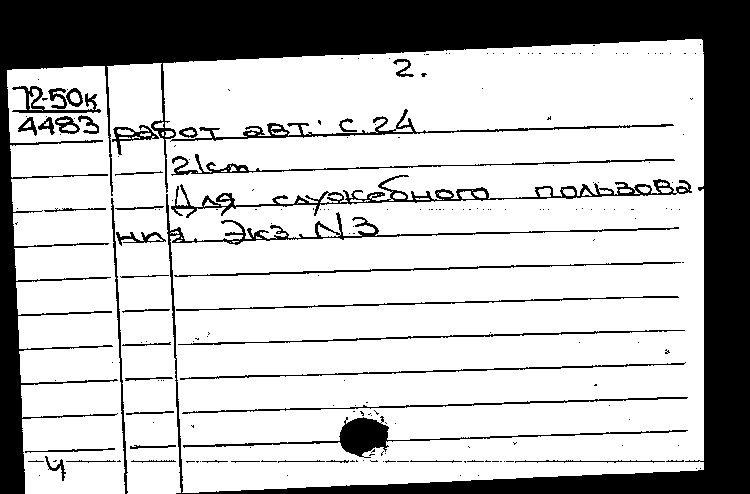 2.
72-50к
4483 работ авт.: с.24
21cm.
Для служебного пользова-
ния. Экз. N3
ч